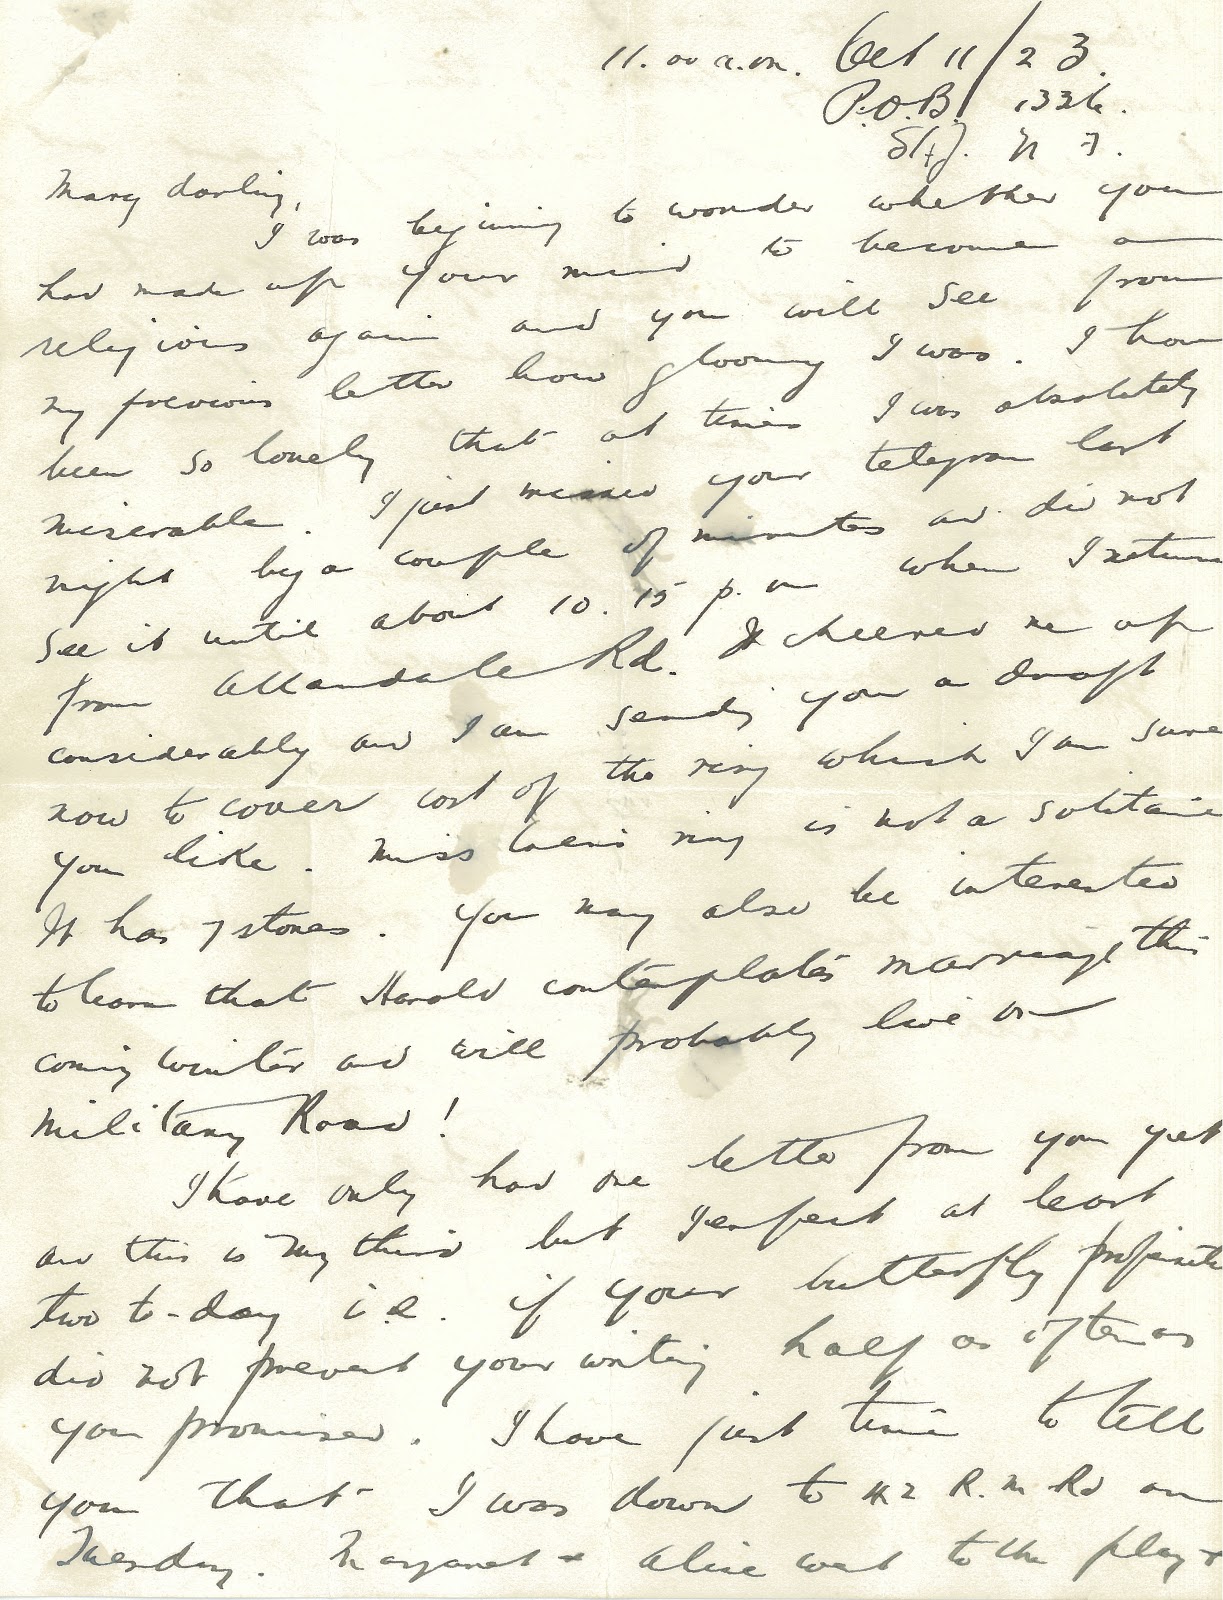 11.00 a.m. Oct 11/23.
P.O.B. 1336.
St J. N F.
Mary darling,
I was begining to wonder whether you
had made up your mind to become a
religious again and you will see from
my previous letter how gloomy I was. I have
been so lonely that at times I was absolutely
miserable. I just missed your telegram last
night by a couple of minutes and did not
see it until about 10.15 p.m when I return
from Allandale Rd. It cheered me up
considerably and I am sending you a draft
now to cover cost of the ring which I am sure
you like. Miss ring is not a solitaire
It has 7 stones. You may also be interested
to learn that Harold contemplates marriage this
coming winter and will probably live on
Military Road!
I have only had one letter from you yet
and this is my third but I expect at least
two to-day i.e. if your butterfly
did not prevent your writing half as often as
you promised. I have just time to tell
you that I was down to 42 R. M Rd on
Tuesday. Margaret + Alice went to the play +